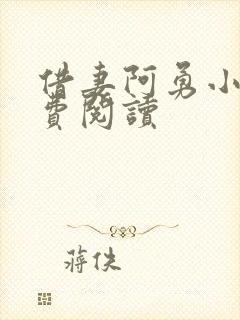 借妻阿勇小
費閱讀
蔣佚